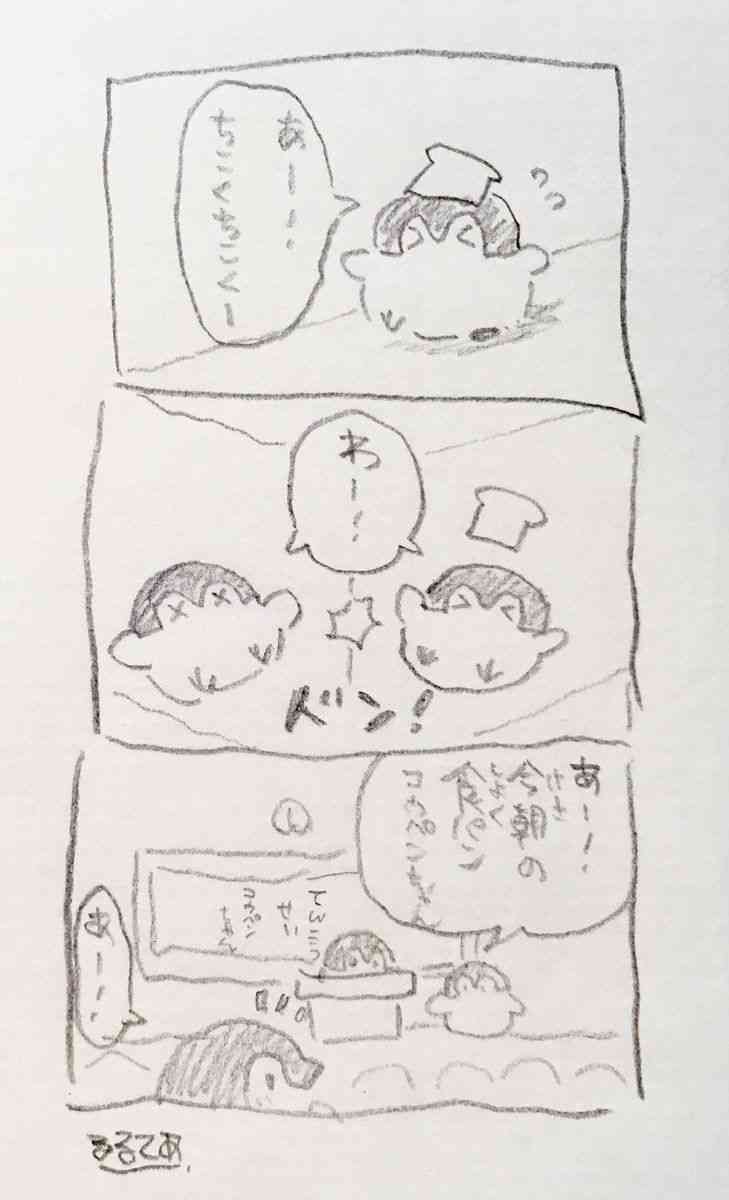 あーー!
ちこくちこくー
わー!
ドン!
あー!
今朝の
けさ
食パン
しょく
コウペンちゃん
てんこう
せい
コウペン
ちゃん
あー!
るるてあ